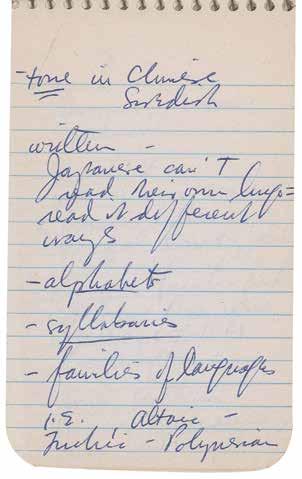 -tone in Chinese
Swedish
written -
Japanese can't
read their own lingo=
read it different
ways
-alphabets
-syllabaries
- families of languages
I.E. Altaic -
- Polynesian